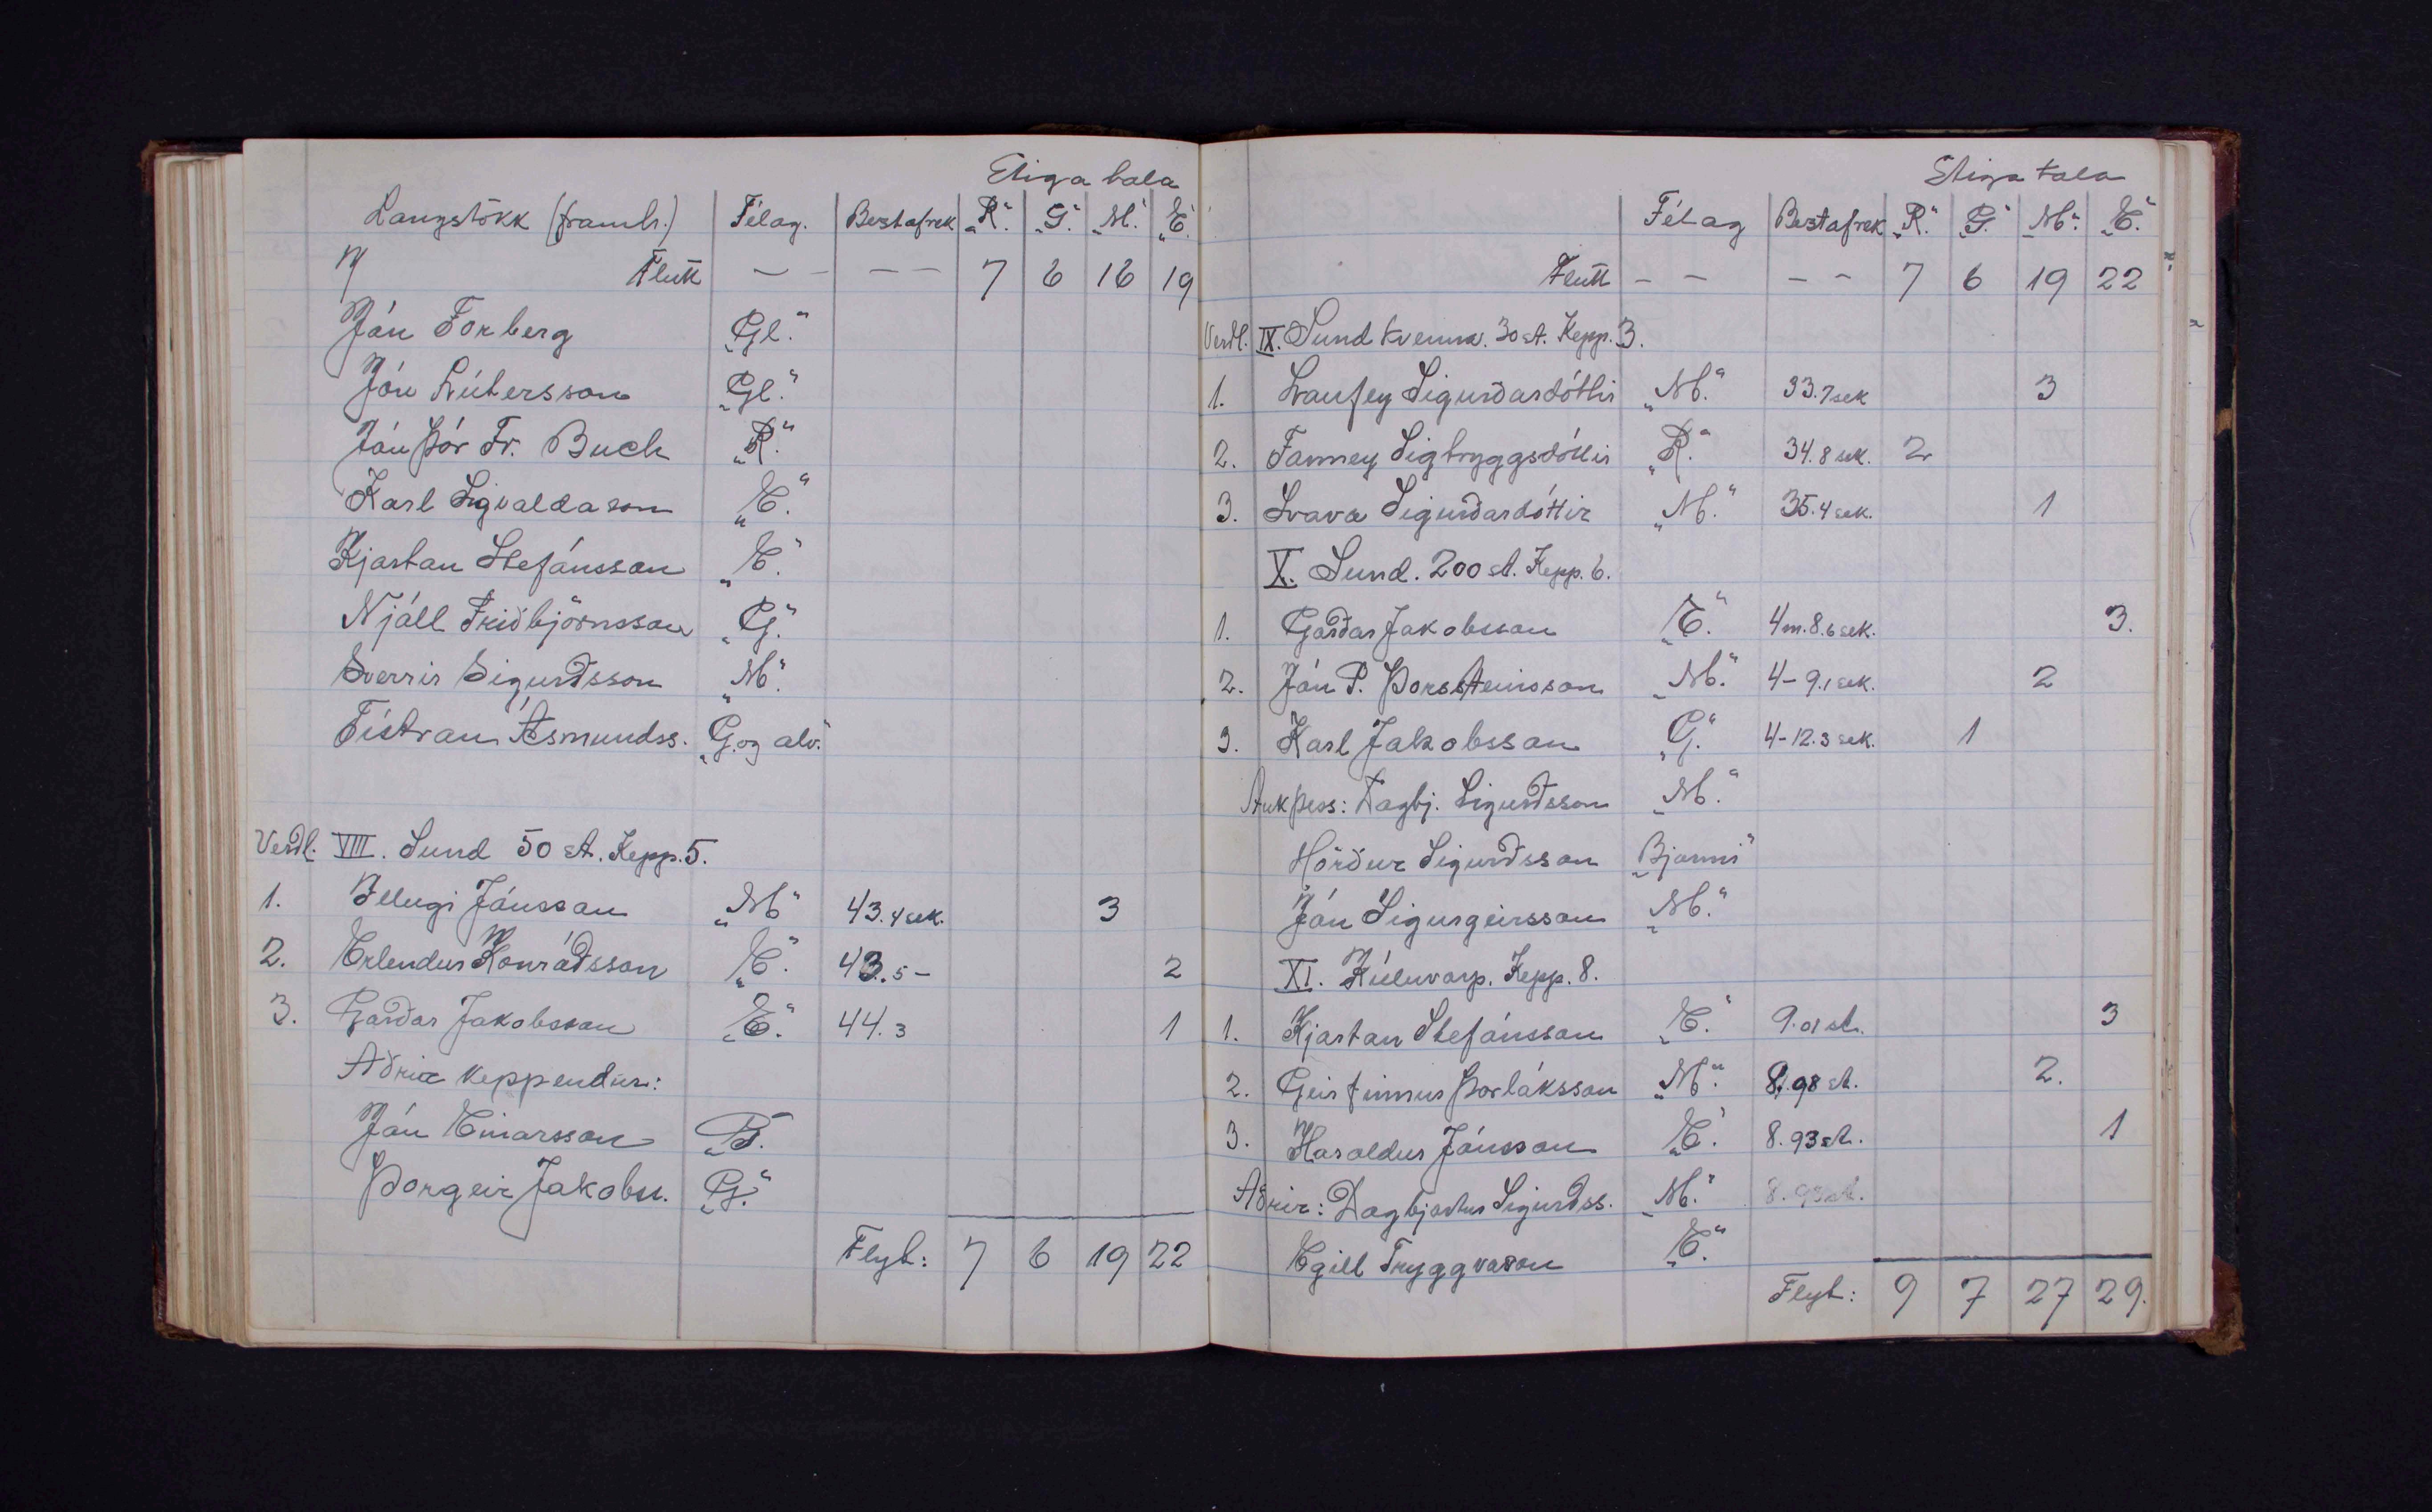 Stiga tala
Langstökk (framh.) Félag. Bestafrek „R." „G." „M." „E."
Flutt — - — — 7 6 16 19
Jón Forberg „Gl."
Jón Lútersson „Gl."
Jón Þór Fr. Buch „R."
Karl Sigvaldason „E."
Kjartan Stefánsson „E."
Njáll Friðbjörnsson „G."
Sverrir Sigurðsson „M."
Tístran Ásmundss. „G.og alv."
Verðl. VIII. Sund 50 st. Kepp. 5.
1. Illugi Jónsson „M" 43.4 sek. 3
2. Erlendur Konráðsson „E." 43.5 - 2
3. Garðar Jakobsson „E." 44.3 1
Aðrir keppendur:
Jón Einarsson
Þorgeir Jakobss. „G."
Flyt: 7 6 19 22
Stiga tala
Félag Bestafrek „R." „G." „M." „E."
Flutt - - - - 7 6 19 22
Verðl. IX. Sund kvenna. 30 st. Kepp. 3.
1. Laufey Sigurðardóttir „M." 33.7 sek 3
2. Fanney Sigtryggsdóttir „R." 34.8 sek. 2
3. Svava Sigurðardóttir „M." 35.4 sek. 1
X. Sund. 200 st. Kepp. 6.
1. Garðar Jakobsson „E." 4 m. 8.6 sek. 3.
2. Jón P. Þorsteinsson „M." 4 - 9.1 sek. 2
3. Karl Jakobsson „G." 4 - 12.3 sek. 1
Auk þess: Dagbj. Sigurðsson „M."
Hörður Sigurðsson „Bjarmi"
Jón Sigurgeirsson „M."
XI. Kúluvarp. Kepp. 8.
1. Kjartan Stefánsson „E." 9.01 st. 3
2. Geirfinnur Þorláksson „M." 8.98 st. 2.
3. Haraldur Jónsson „E." 8.93 st. 1
Aðrir: Dagbjartur Sigurðss. „M."
Egill Tryggvason „E."
Flyt: 9 7 27 29.